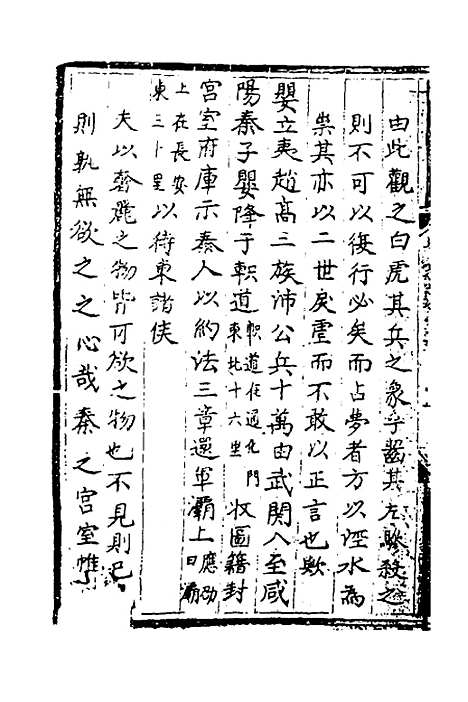 由此觀之白虎其兵之象乎齧其左驂殺之
則不可以復行必矣而占夢者方以涇水為
祟其亦以二世戾虐而不敢以正言也歟
嬰立夷趙高三族沛公兵十萬由武関入至咸
陽秦子嬰降于軹道軹道在通化門東北十六里收圖籍封
宮室府庫示秦人以約法三章還軍霸上應劭曰霸
上在長安東三十里以待東諸侯
夫以奢麗之物皆可欲之物也不見則已
則孰無欲之之心哉秦之宮室帷